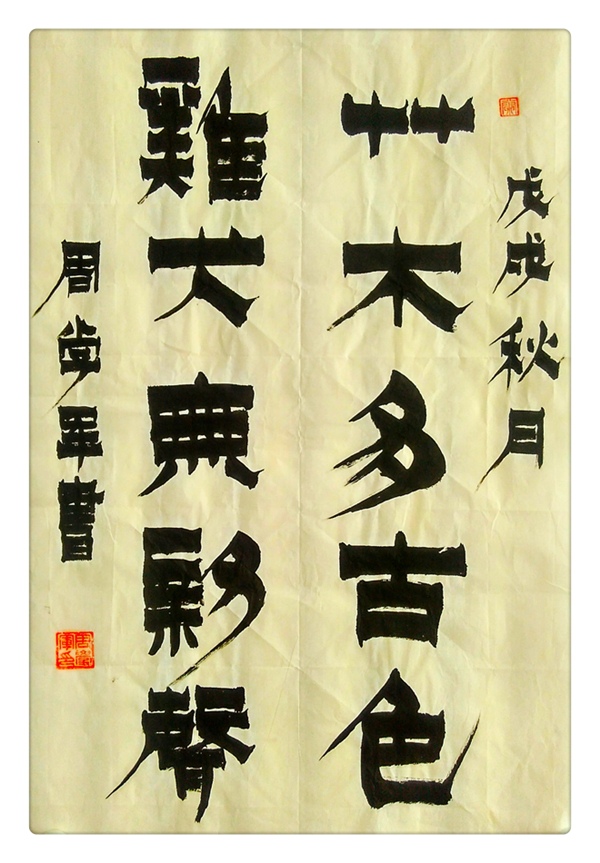 戊戌秋月
艹木多古色
雞犬無新聲
周学军書